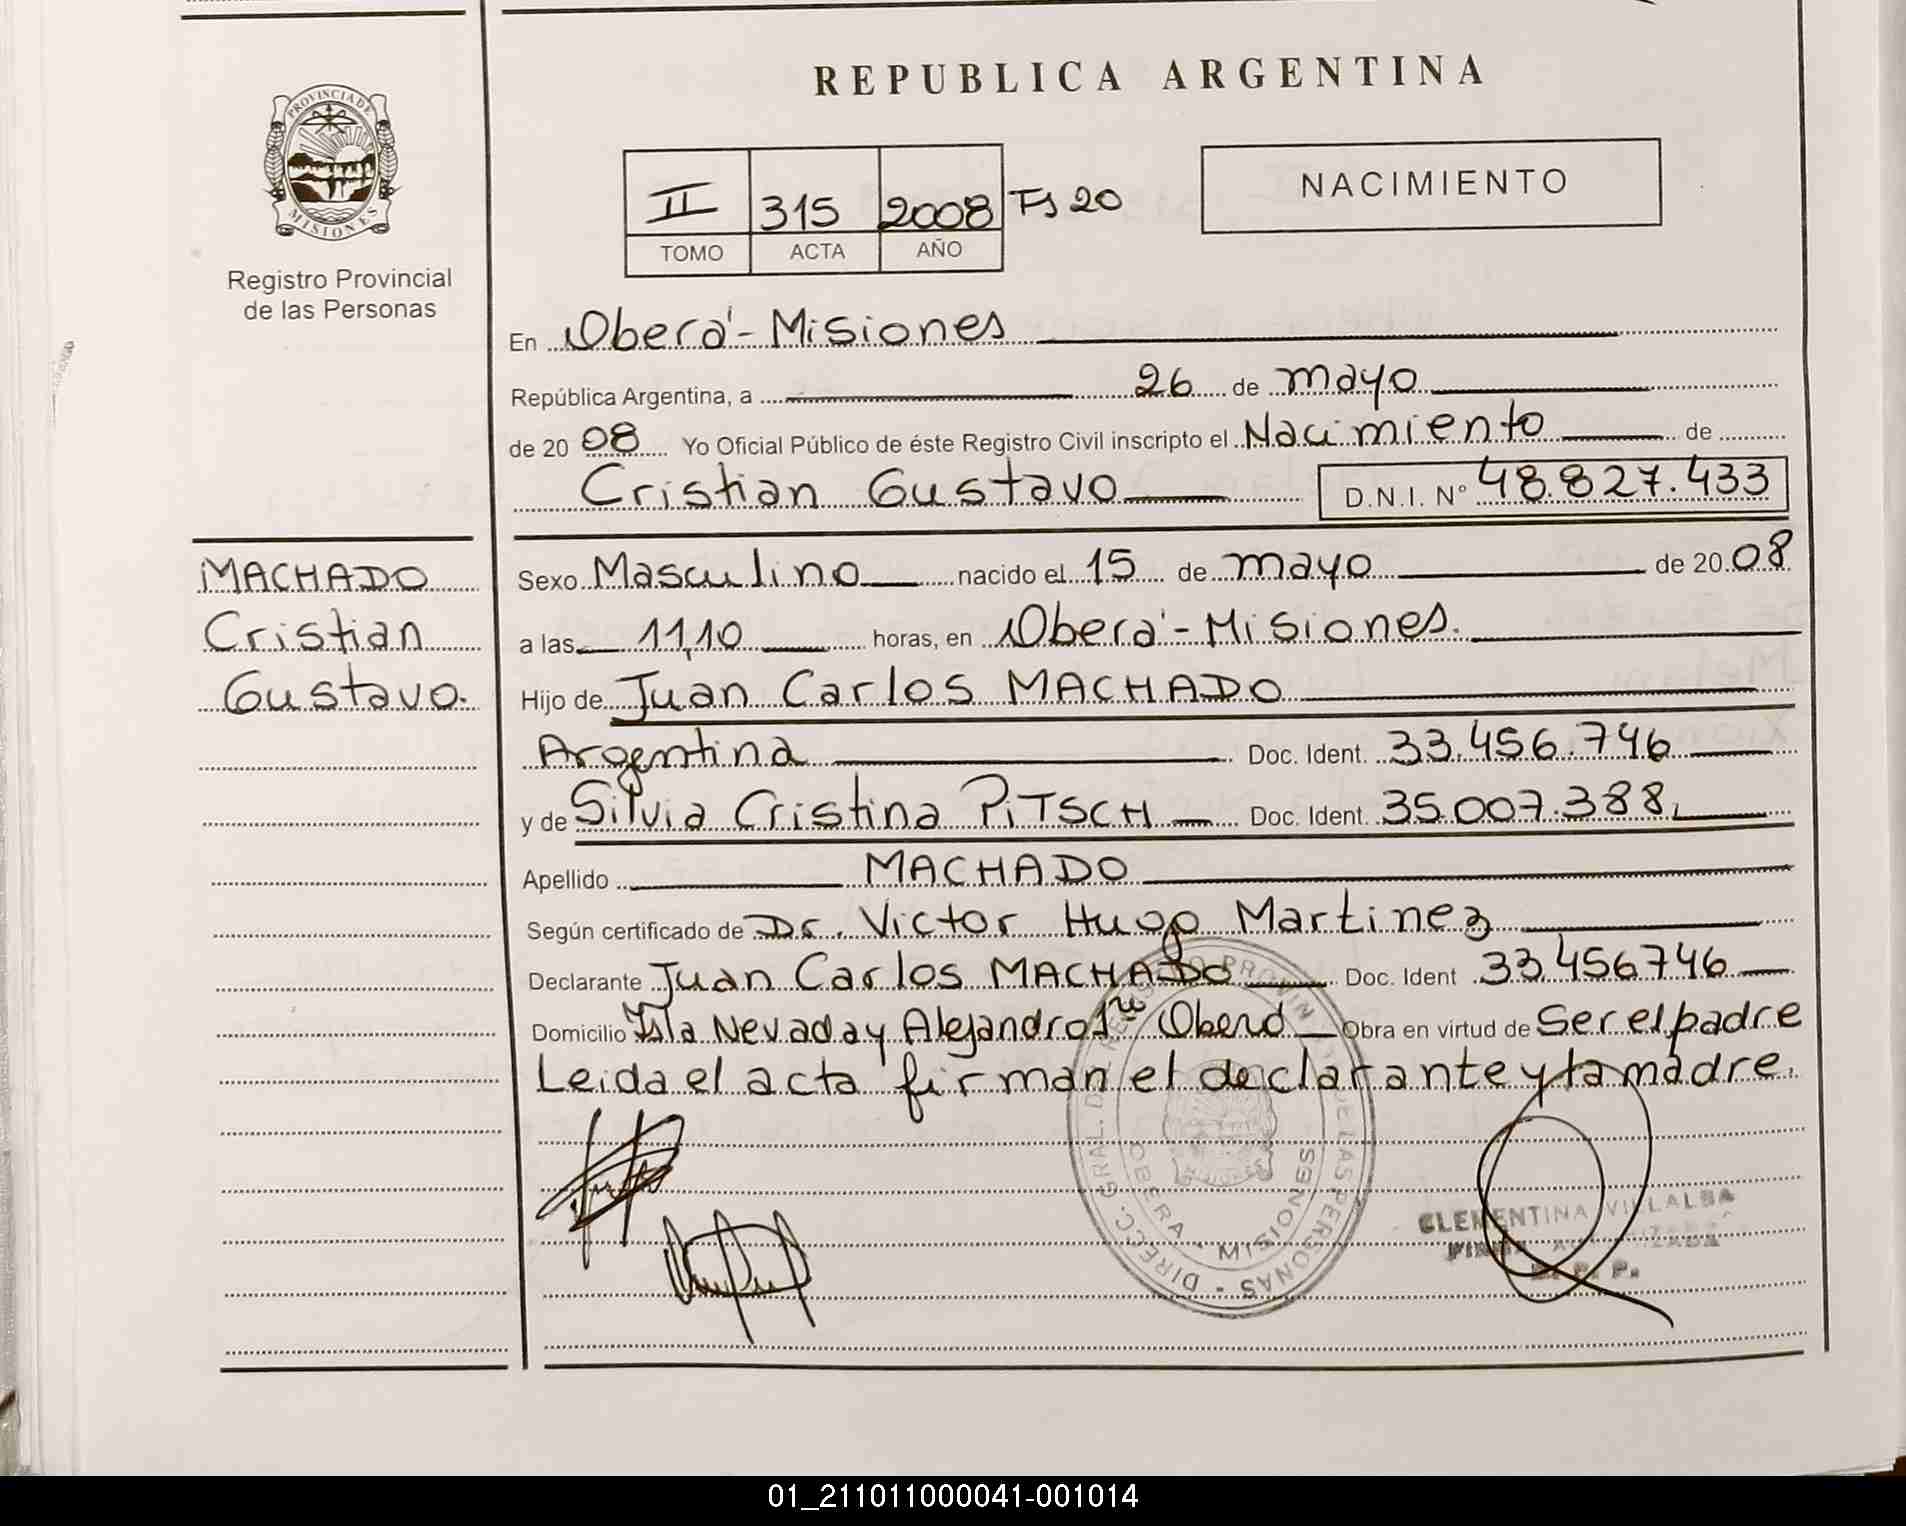 REPUBLICA ARGENTINA
PROVINCIA DE MISIONES
Registro Provincial
de las Personas
II 315 2008 Fs 20
TOMO ACTA AÑO
NACIMIENTO
En Oberá - Misiones
República Argentina, a 26 de mayo
de 20 08 Yo Oficial Público de éste Registro Civil inscripto el Nacimiento de
Cristian Gustavo D.N.I. N° 48.827.433
MACHADO
Cristian
Gustavo.
Sexo Masculino nacido el 15 de mayo de 20 08
a las 11,10 horas, en Oberá - Misiones.
Hijo de Juan Carlos MACHADO
Argentina Doc. Ident. 33.456.746
y de Silvia Cristina PiTSCH Doc. Ident. 35.007.388
Apellido MACHADO
Según certificado de Dr. Victor Hugo Martinez
Declarante Juan Carlos MACHADO Doc. Ident 33.456746
Domicilio Isla Nevada y Alejandro 1ro Oberá Obra en virtud de Ser el padre
Leida el acta firman el declarante y la madre.
DIRECC. GRAL. DE REGISTRO PROVIN DE LAS PERSONAS
OBERA - MISIONES
CLEMENTINA VILLALBA
FIRMA AUTORIZADA
R. P. P.
01_211011000041-001014